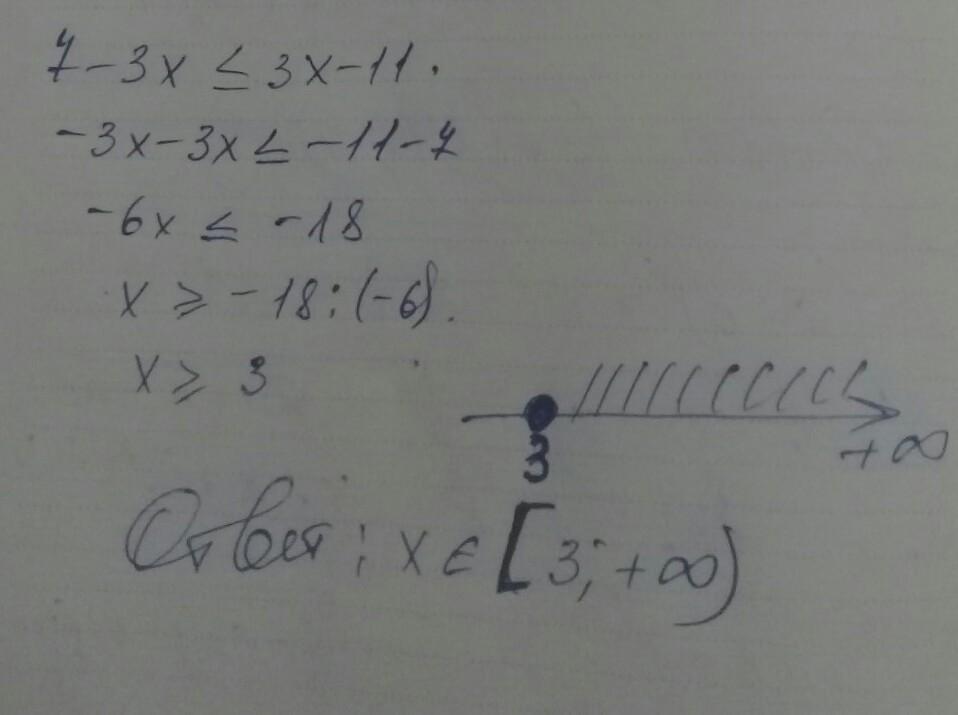 7-3x ≤ 3x-11.
-3x-3x ≤ -11-7
-6x ≤ -18
x ⩾ -18:(-6).
x ⩾ 3
3
+∞
Ответ: x ∈ [3; +∞)